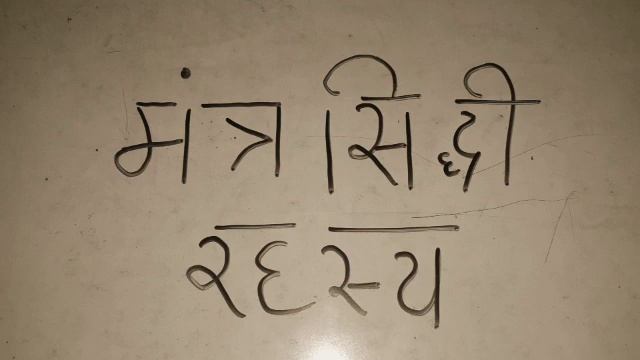 मंत्र सिद्धी
रहस्य